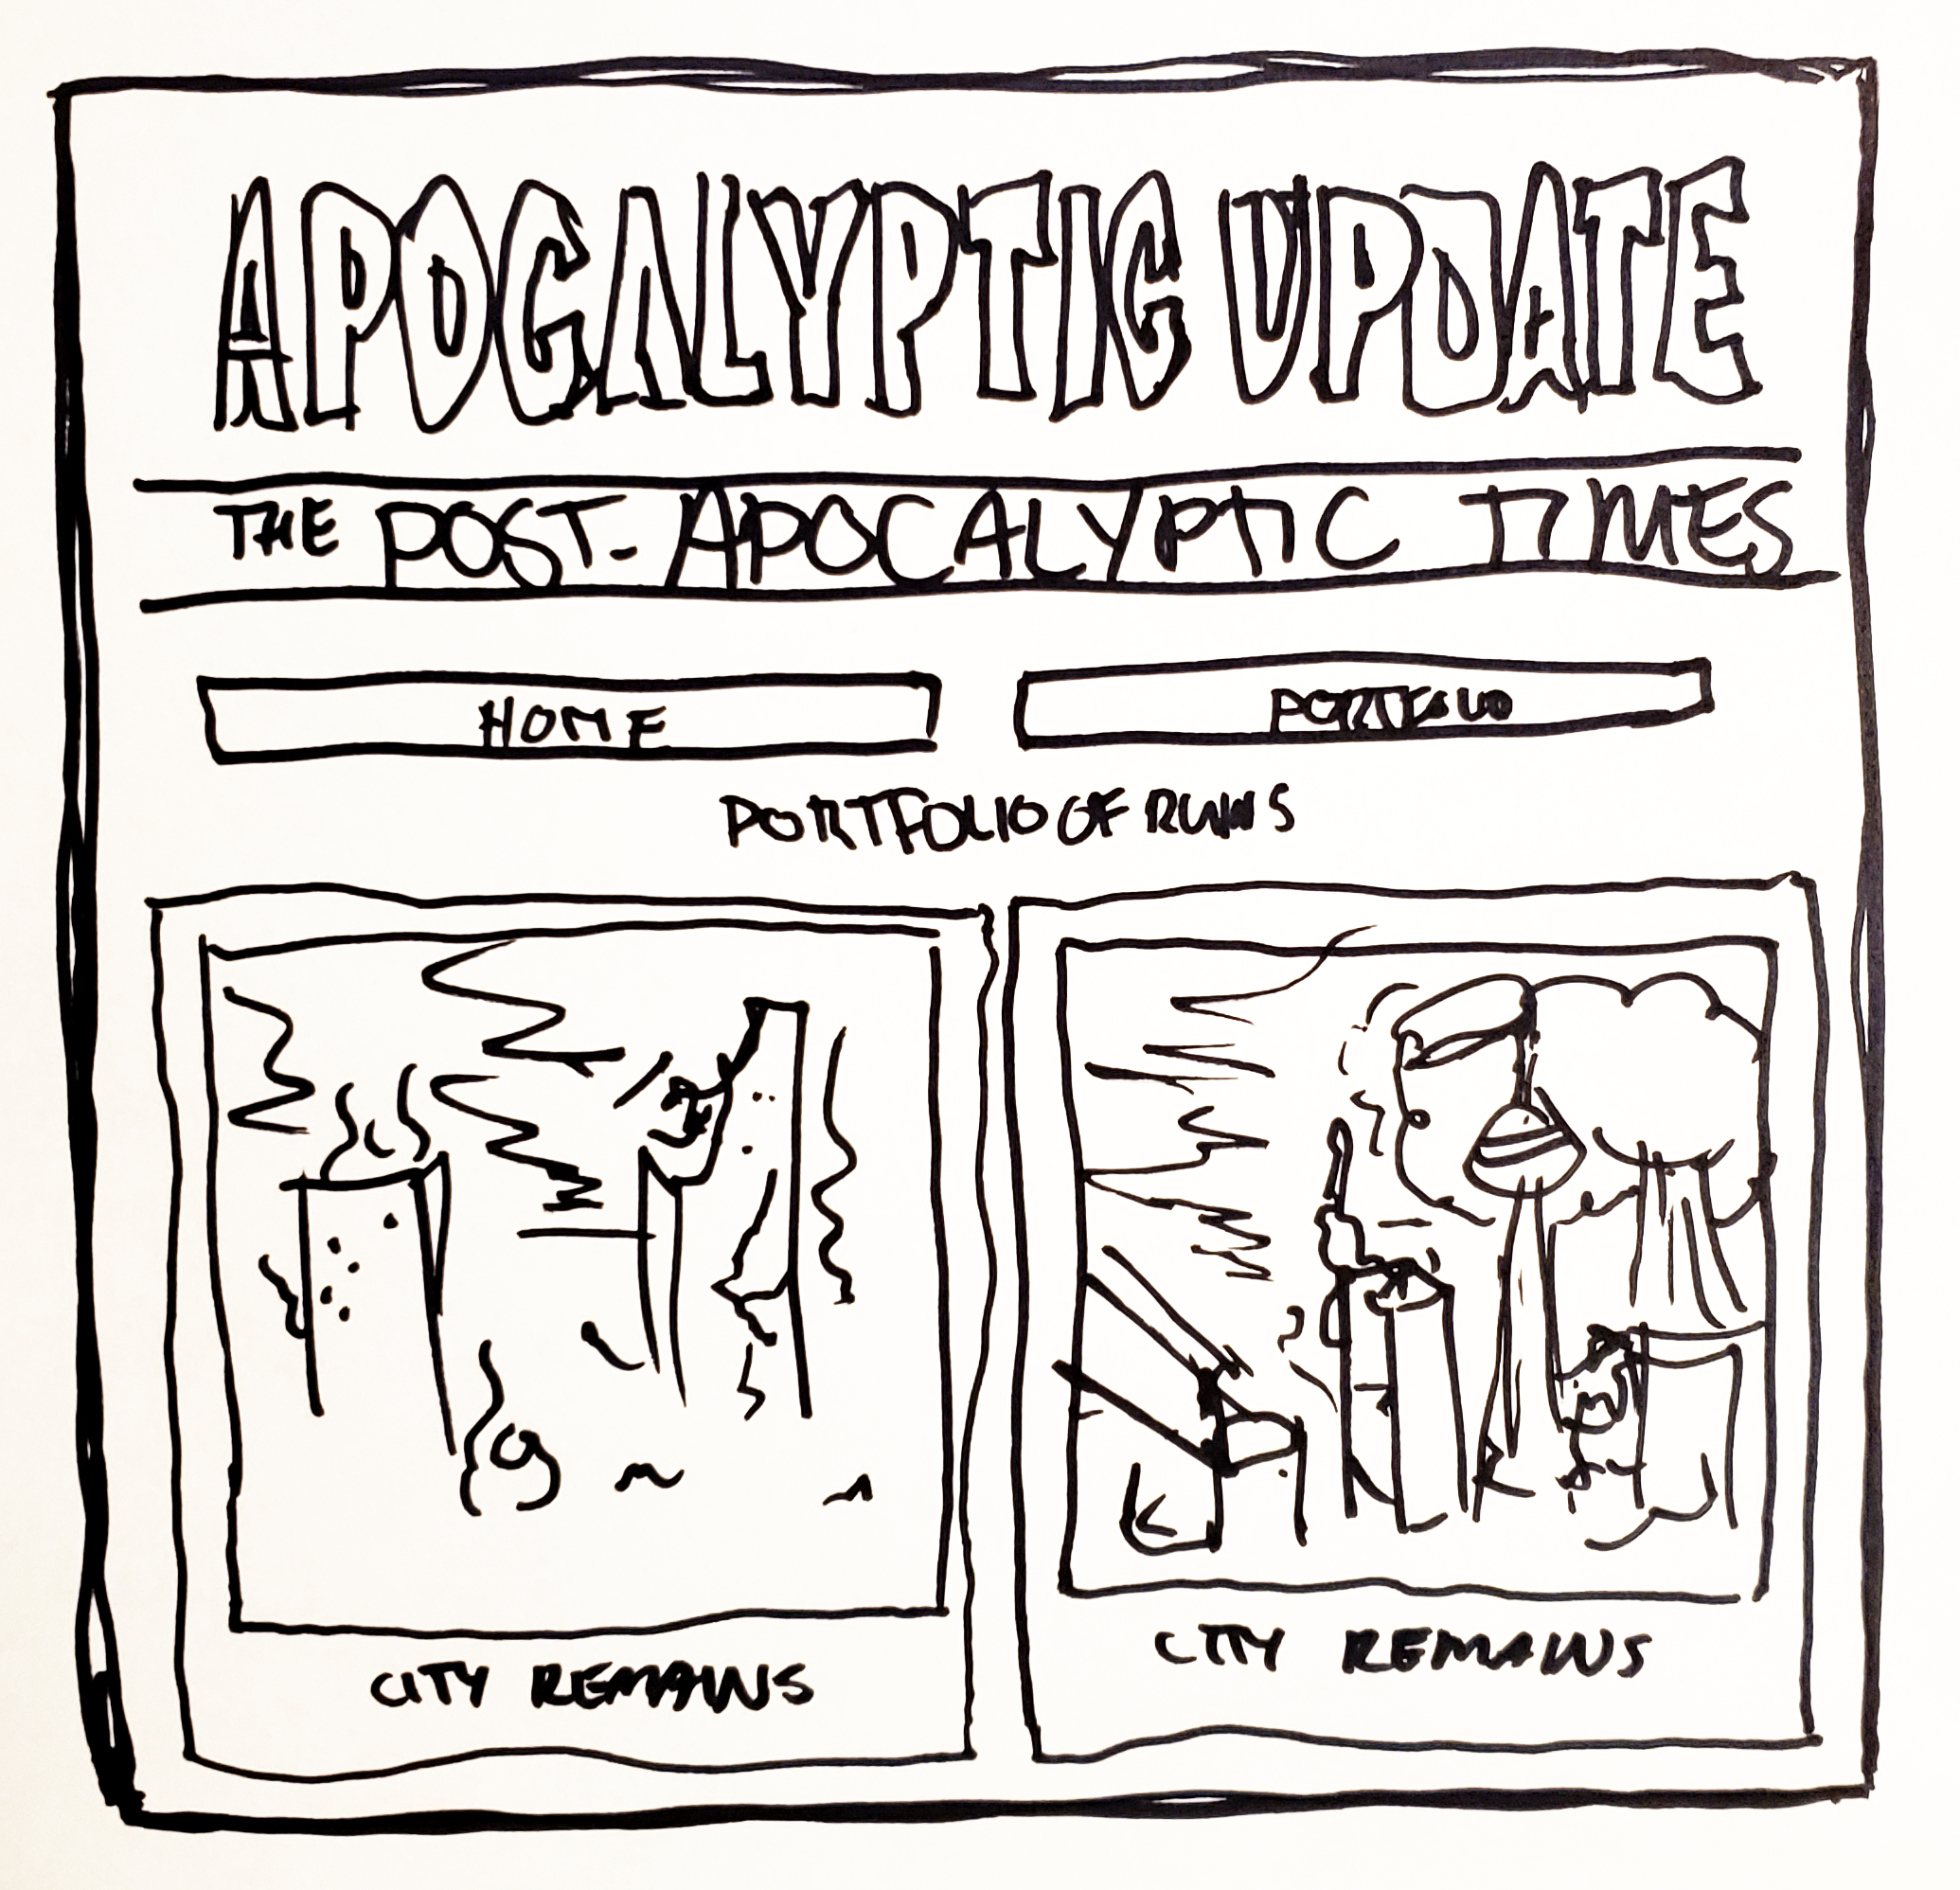 APOCALYPTIC UPDATE
THE POST-APOCALYPTIC TIMES
HOME
PORTFOLIO
PORTFOLIO OF RUINS
CITY REMAINS
CITY REMAINS